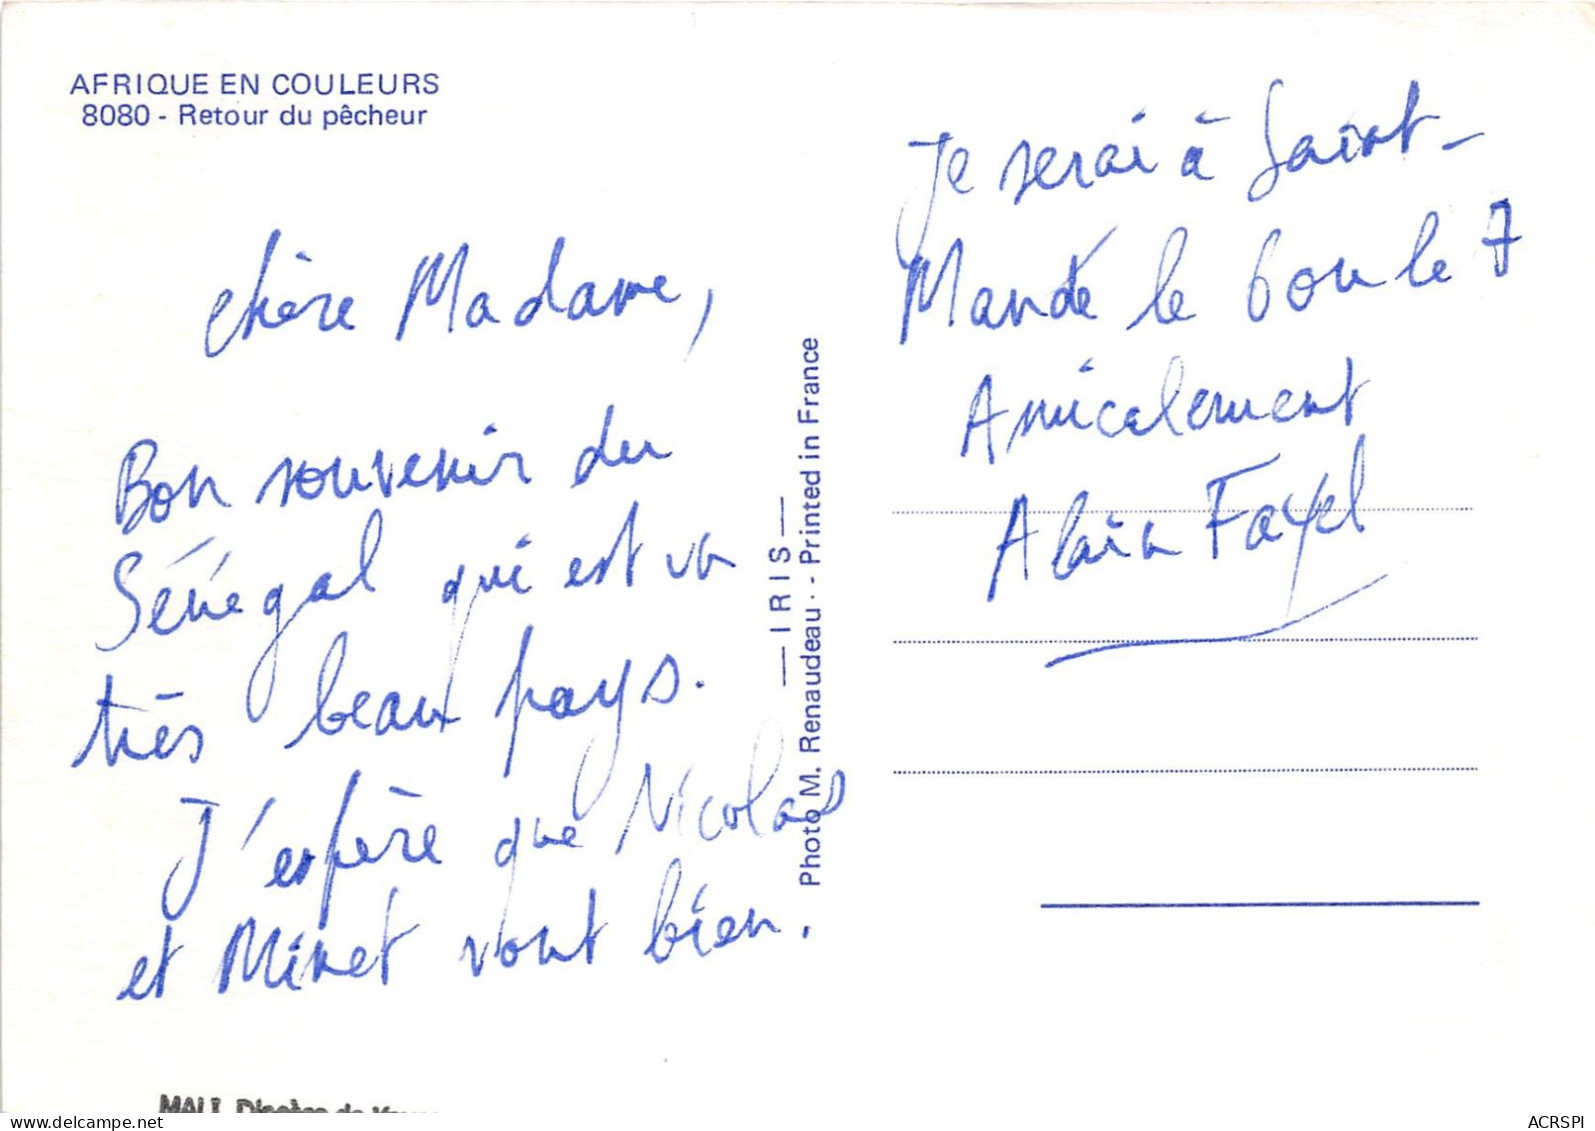 AFRIQUE EN COULEURS
8080 - Retour du pêcheur
chère Madame,
Bon souvenir du
Sénégal qui est un
très beau pays.
J'espère que Nicolas
et Minet vont bien.
— IRIS —
Photo M. Renaudeau - - Printed in France
Je serai à Saint-
Mandé le 6 ou le 7
Amicalement
Alain Fayel
MALI
www.delcampe.net
ACRSPI